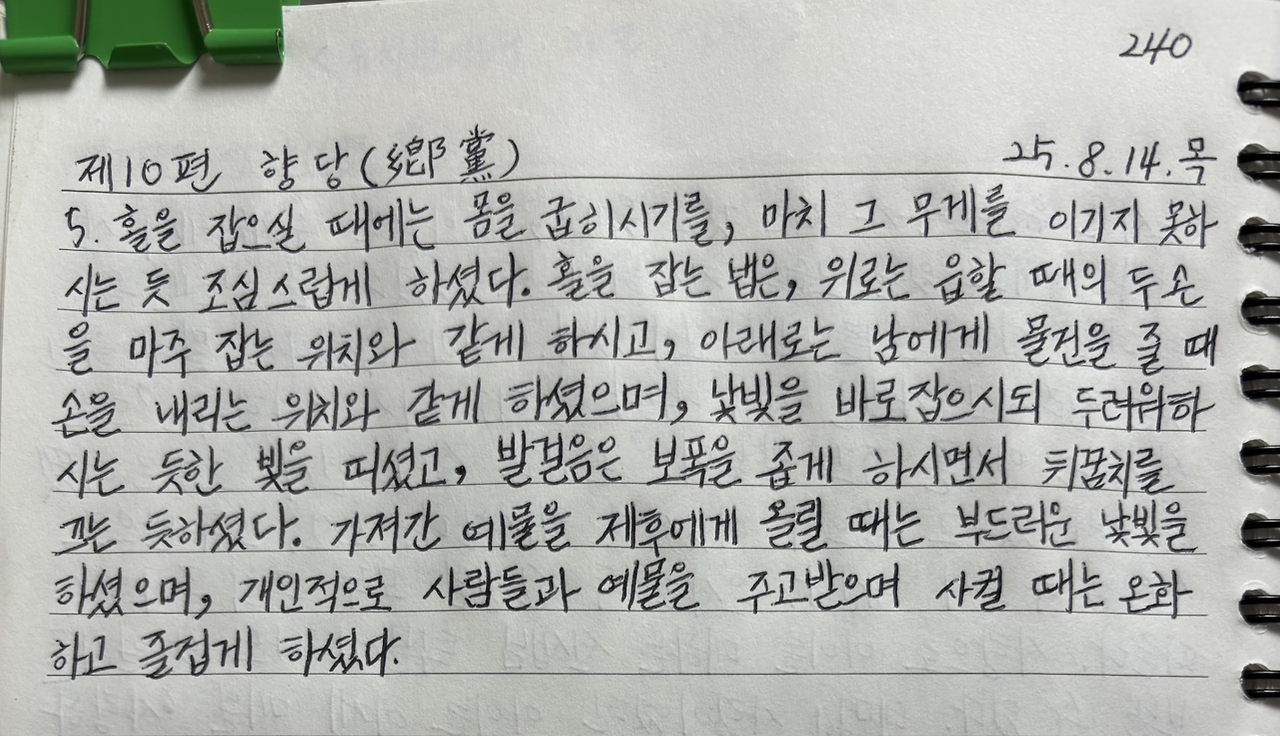 240
제10편 향당(鄕黨) 25.8.14.목
5. 홀을 잡으실 때에는 몸을 굽히시기를, 마치 그 무게를 이기지 못하
시는 듯 조심스럽게 하셨다. 홀을 잡는 법은, 위로는 읍할 때의 두 손
을 마주 잡는 위치와 같게 하시고, 아래로는 남에게 물건을 줄 때
손을 내리는 위치와 같게 하셨으며, 낯빛을 바로잡으시되 두려워하
시는 듯한 빛을 띠셨고, 발걸음은 보폭을 좁게 하시면서 뒤꿈치를
끄는 듯하셨다. 가져간 예물을 제후에게 올릴 때는 부드러운 낯빛을
하셨으며, 개인적으로 사람들과 예물을 주고받으며 사귈 때는 온화
하고 즐겁게 하셨다.